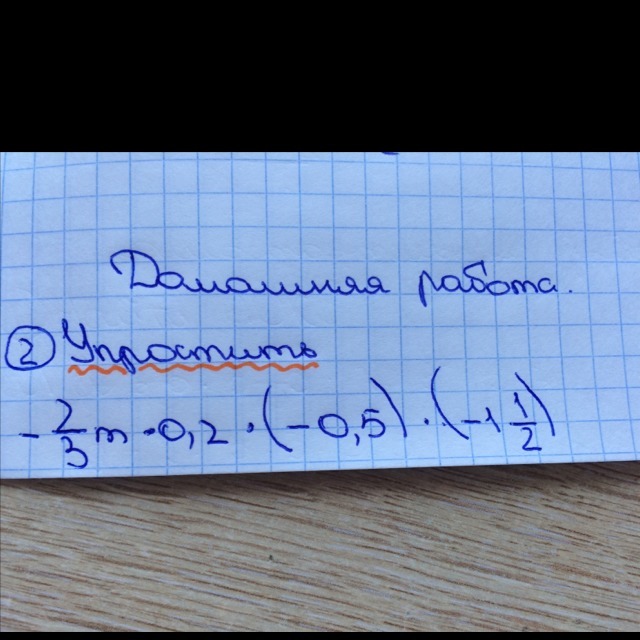 Домашняя работа.
② Упростить
- 2/3 m · 0,2 · (-0,5) · (-1 1/2)